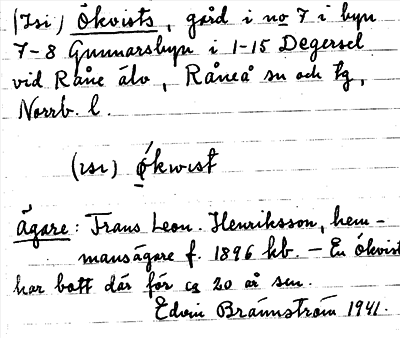 (Isi) Ökvists, gård i no 7 i byn
7-8 Gunnarsbyn i 1-15 Degersel
vid Råne älv, Råneå sn och tg,
Norrb. l.
(ısı) ǿkwıst
Ägare: Frans Leon. Henriksson, hem-
mansägare f. 1896 kb. - En Ökvist
har bott där för ca 20 år sen.
Edvin Brännström 1941.